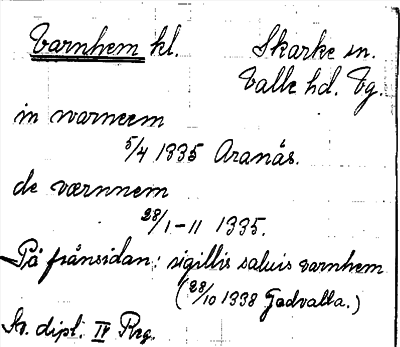 Varnhem kl. Skarke sn.
Valle hd. Vg.
in warneem
5/4 1335 Aranäs.
de værnnem
28/1-11 1335.
På frånsidan: sigillis saluis varnhem
(28/10 1338 Gadvalla.)
Sv. dipl. IV Reg.